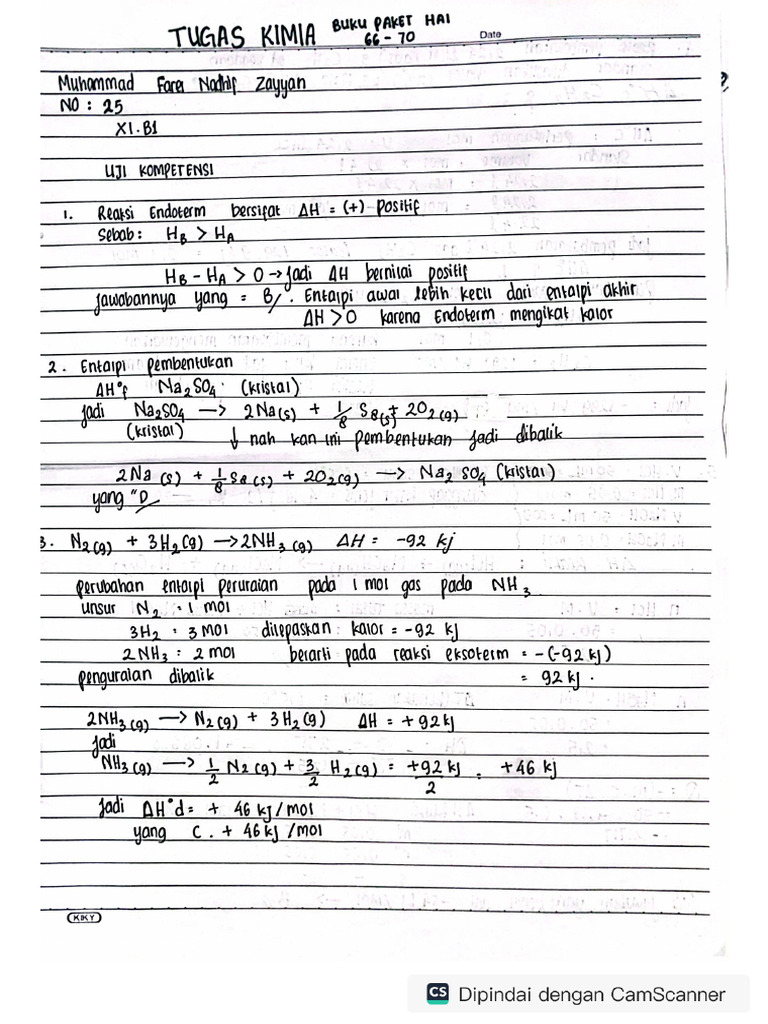 TUGAS KIMIA BUKU PAKET HAL 66 - 70
Date
Muhammad Farel Nadhif Zayyan
NO : 25
XI.B1
UJI KOMPETENSI
1. Reaksi Endoterm bersifat ΔH = (+) positif
Sebab : H_B > H_A
H_B - H_A > 0 → Jadi ΔH bernilai positif
Jawabannya yang = B/. Entalpi awal lebih kecil dari entalpi akhir
ΔH > 0 karena Endoterm mengikat kalor
2. Entalpi pembentukan
ΔH°f Na₂SO₄ (kristal)
jadi Na₂SO₄ → 2Na(s) + 1/8 S₈(s) + 2O₂(g)
(kristal) ↓ nah kan ini pembentukan jadi dibalik
2Na (s) + 1/8 S₈ (s) + 2O₂(g) → Na₂SO₄ (kristal)
yang "D
3. N₂(g) + 3H₂(g) → 2NH₃(g) ΔH = -92 kj
perubahan entalpi peruraian pada 1 mol gas pada NH₃
unsur N₂ = 1 mol
3H₂ = 3 mol dilepaskan : kalor = -92 kj
2NH₃ = 2 mol berarti pada reaksi eksoterm = -(-92 kj)
penguraian dibalik = 92 kj .
2NH₃(g) → N₂(g) + 3H₂(g) ΔH = +92 kj
jadi
NH₃(g) → 1/2 N₂(g) + 3/2 H₂(g) = +92 kj/2 = +46 kj
Jadi ΔH°d = + 46 kj/mol
yang C. + 46 kj /mol
KIKY
CS Dipindai dengan CamScanner